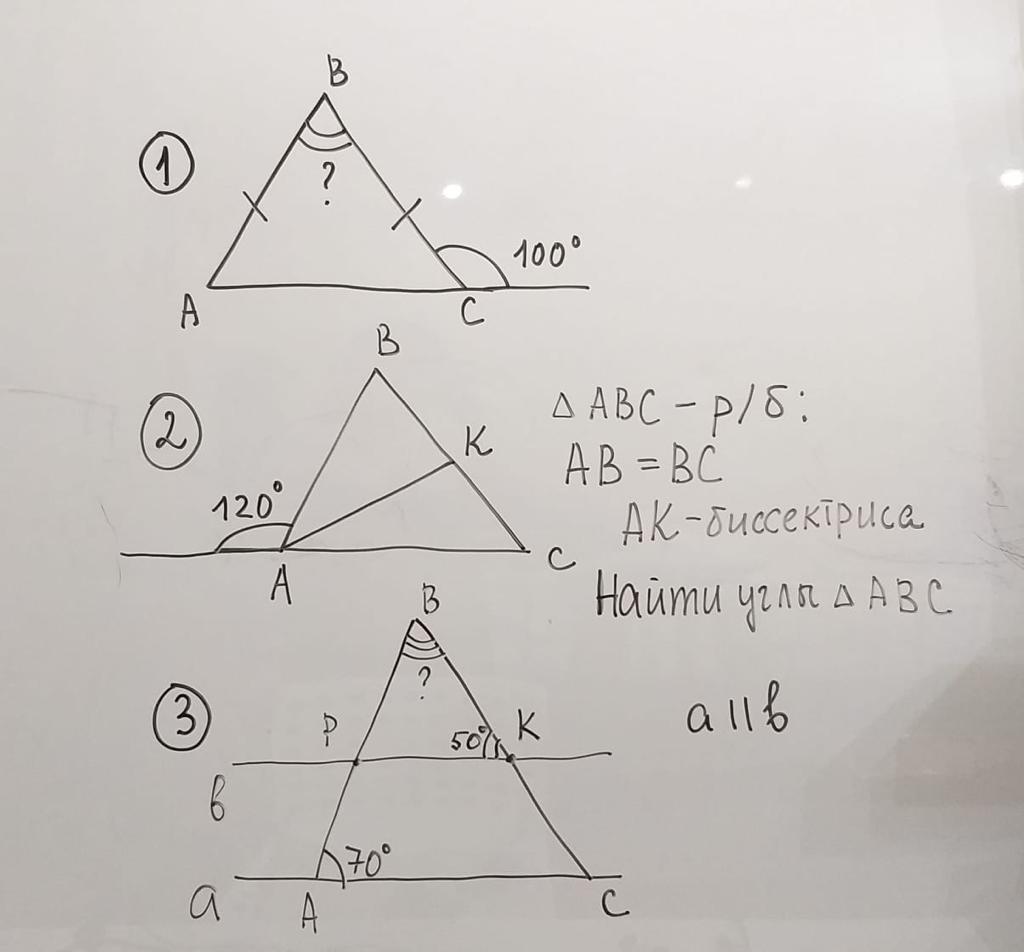 B
1
?
100°
A
C
B
2
K
120°
A
C
△ ABC - р/б:
AB = BC
AK-биссектриса
Найти углы △ ABC
B
3
?
P
50°
K
a || b
b
70°
a
A
C